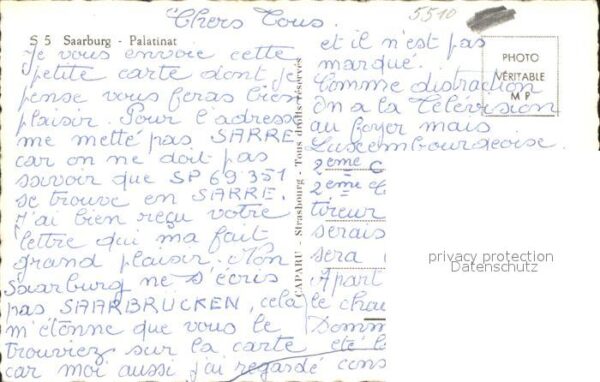 Chers Tous.
5510
S 5 Saarburg - Palatinat
Je vous envoie cette
petite carte dont je
pense vous feras bien
plaisir. Pour l'adresse
me metté pas SARRE
car on ne doit pas
savoir que SP 69 351
se trouve en SARRE.
J'ai bien reçu votre
lettre qui ma fait
grand plaisir.
Saarburg ne s'écris
pas SAARBRUCKEN, cela
m'étonne que vous le
trouviez sur la carte
car moi aussi j'ai regardé
CAPARU - Strasbourg - Tous droits réservés
et il n'est pas
marqué.
Comme distraction
on a la Télévision
au foyer mais
Luxembourgeoise.
2eme C
2eme
tireur
serais
sera
Apart
le chau
Domm
été
PHOTO
VÉRITABLE
M P
privacy protection
Datenschutz